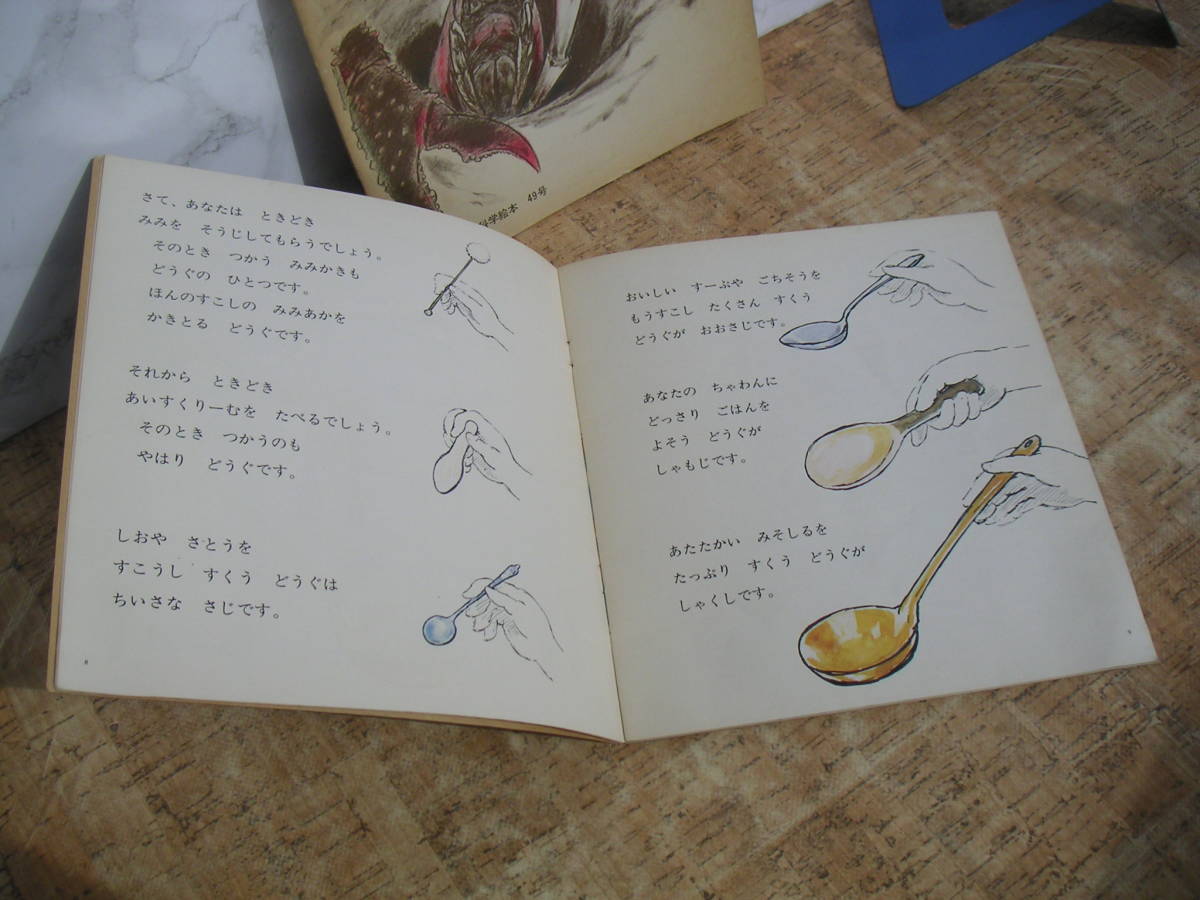 科学絵本 49号
さて、あなたは ときどき
みみを そうじしてもらうでしょう。
そのとき つかう みみかきも
どうぐの ひとつです。
ほんのすこしの みみあかを
かきとる どうぐです。
それから ときどき
あいすくりーむを たべるでしょう。
そのとき つかうのも
やはり どうぐです。
しおや さとうを
すこうし すくう どうぐは
ちいさな さじです。
8
おいしい すーぷや ごちそうを
もうすこし たくさん すくう
どうぐが おおさじです。
あなたの ちゃわんに
どっさり ごはんを
よそう どうぐが
しゃもじです。
あたたかい みそしるを
たっぷり すくう どうぐが
しゃくしです。